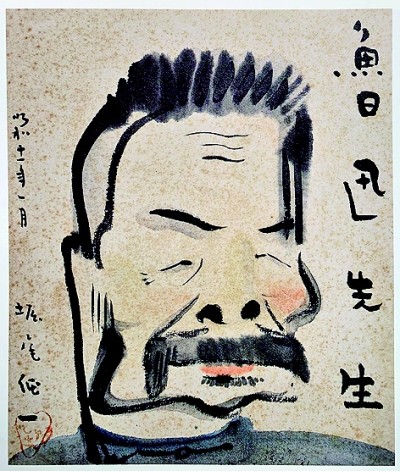 魯迅先生
昭和十一年一月
堀尾純一